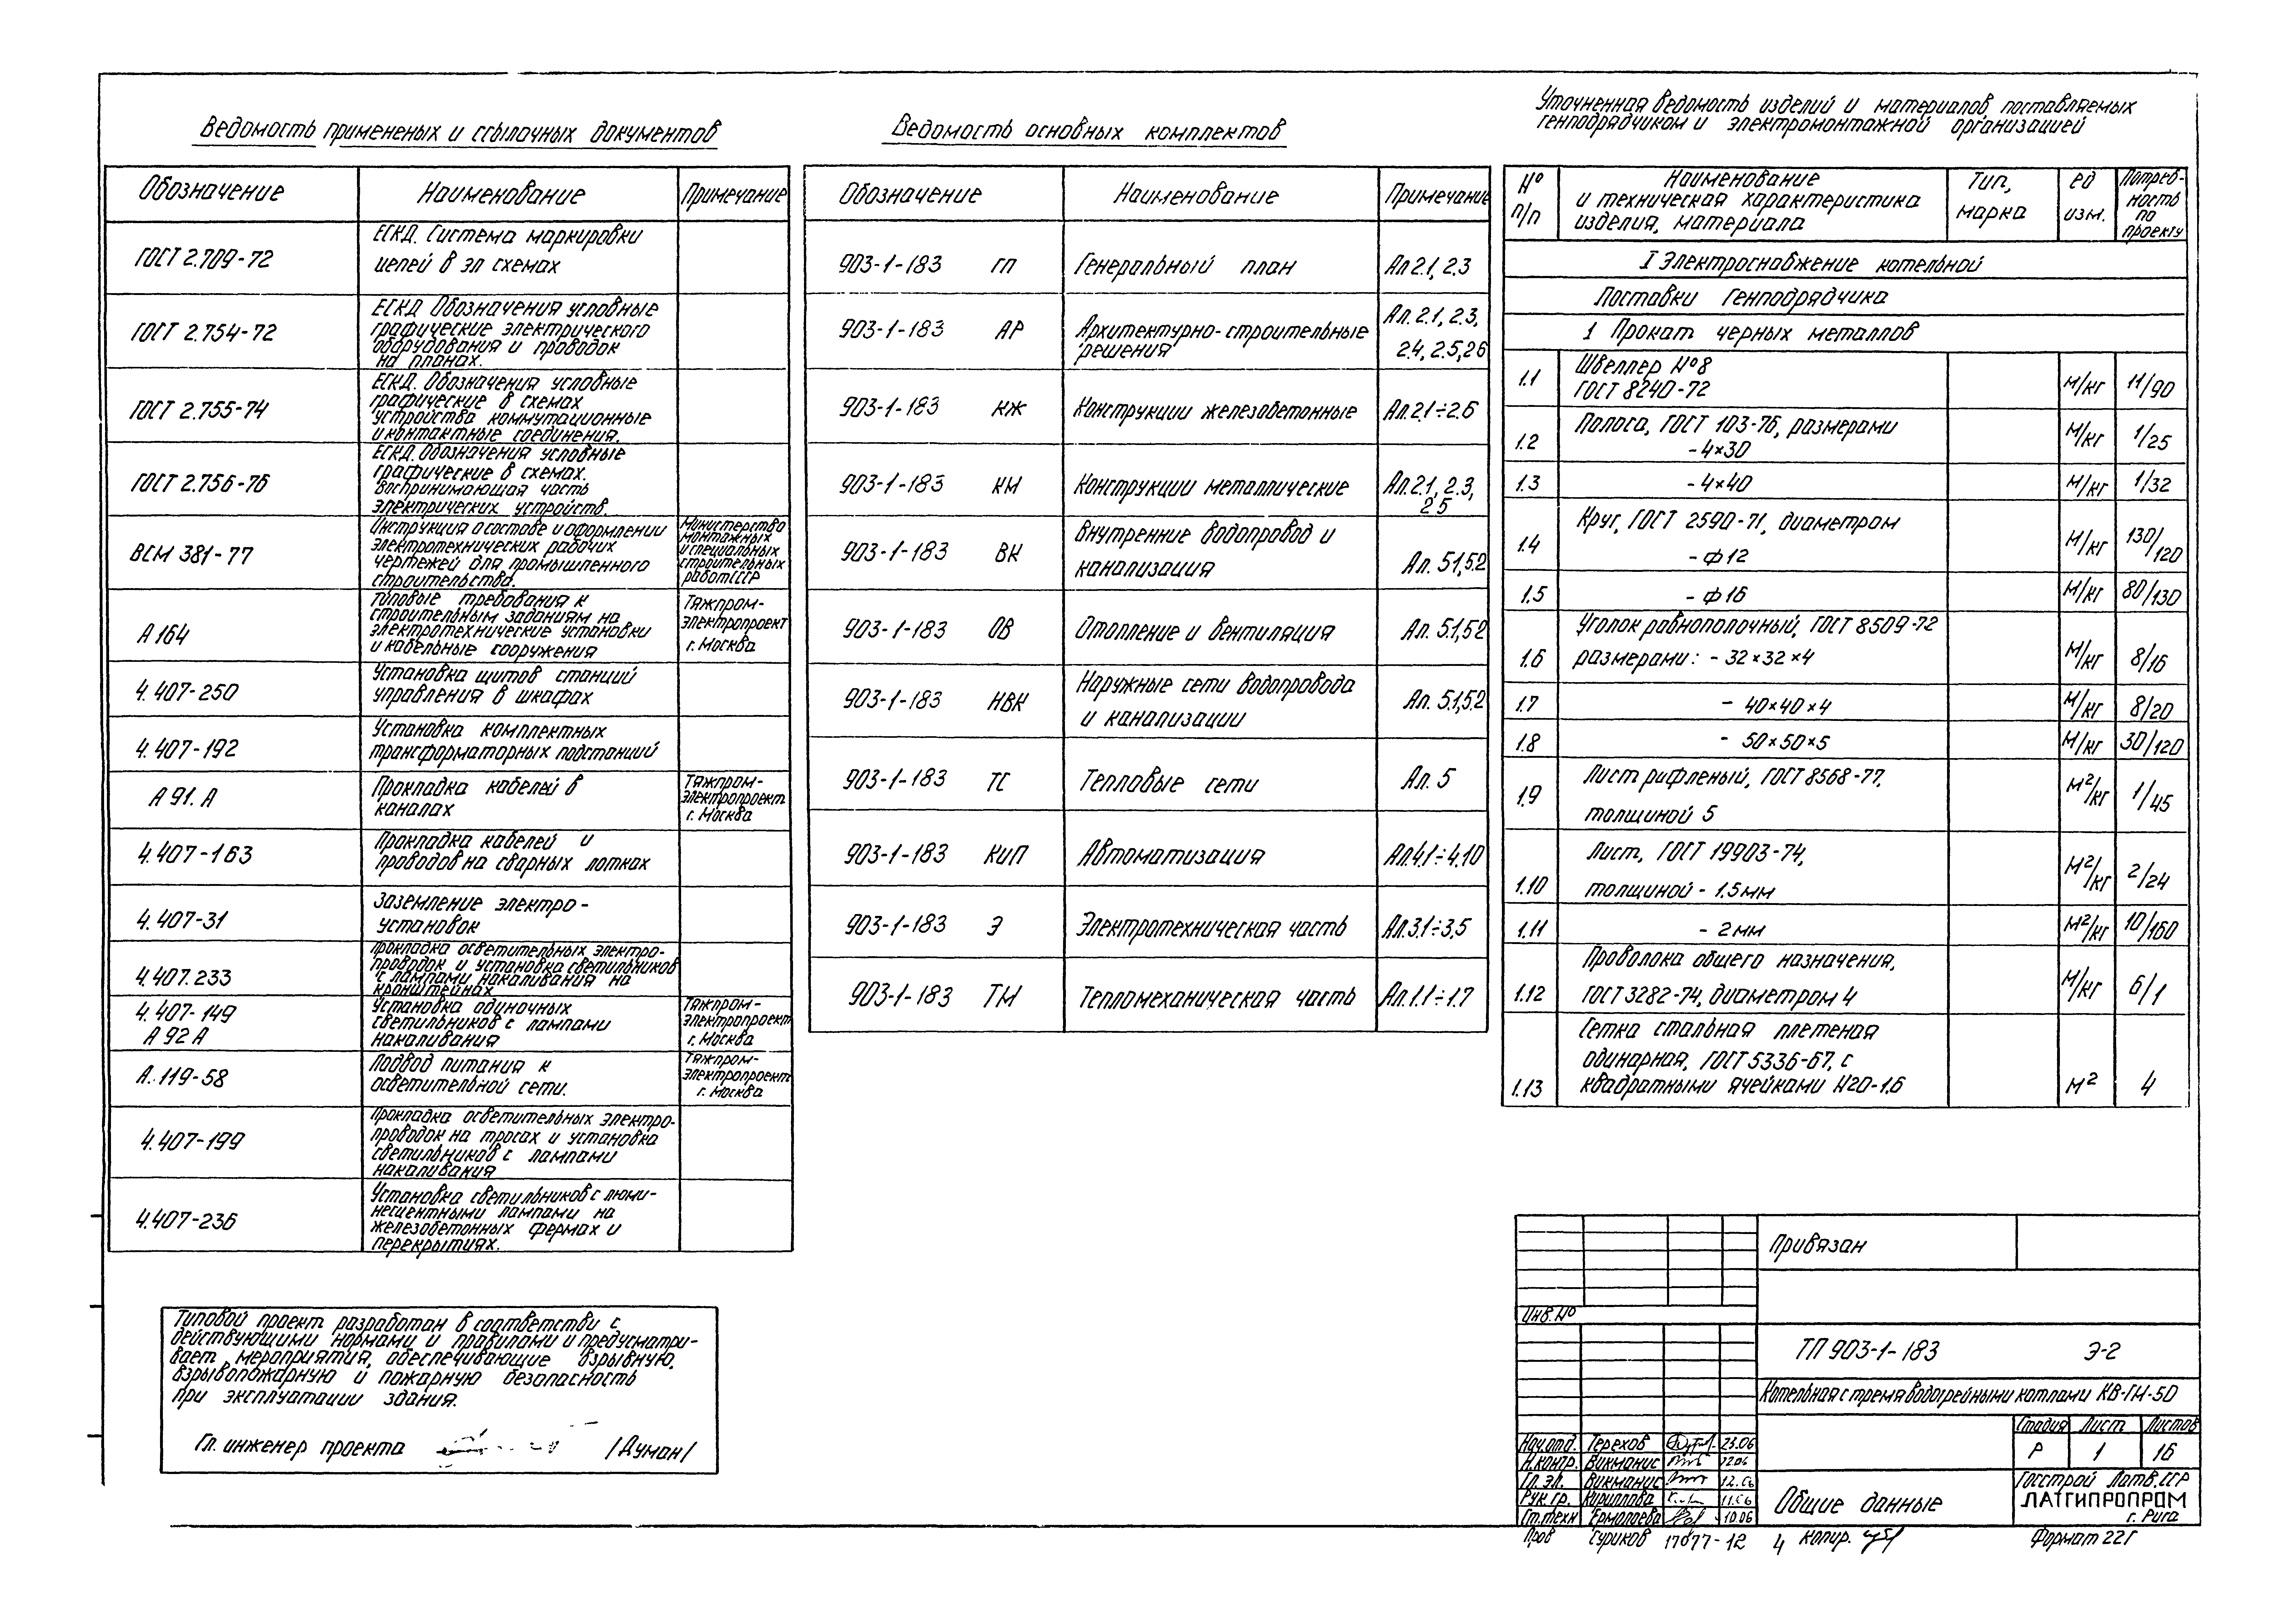 Ведомость примененых и ссылочных документов
Обозначение Наименование Примечание
ГОСТ 2.709-72
ЕСКД. Система маркировки
цепей в эл схемах
ГОСТ 2.754-72
ЕСКД Обозначения условные
графические электрического
оборудования и проводок
на планах.
ГОСТ 2.755-74
ЕСКД. Обозначения условные
графические в схемах
устройства коммутационные
и контактные соединения.
ГОСТ 2.756-76
ЕСКД. Обозначения условные
графические в схемах.
Воспринимающая часть
электрических устройств.
ВСМ 381-77
Инструкция о составе и оформлении
электротехнических рабочих
чертежей для промышленного
строительства.
Министерство
монтажных
и специальных
строительных
работ СССР
А 164
Типовые требования к
строительным заданиям на
электротехнические установки
и кабельные сооружения
Тяжпром-
электропроект
г. Москва
4.407-250
Установка щитов станций
управления в шкафах
4.407-192
Установка комплектных
трансформаторных подстанций
А 91. А
Прокладка кабелей в
каналах
Тяжпром-
электропроект
г. Москва
4.407-163
Прокладка кабелей и
проводов на сварных лотках
4.407-31
Заземление электро-
установок
4.407.233
Прокладка осветительных электро-
проводок и установка светильников
с лампами накаливания на
кронштейнах
4.407-149
А 92 А
Установка одиночных
светильников с лампами
накаливания
Тяжпром-
электропроект
г. Москва
А. 119-58
Подвод питания к
осветительной сети.
Тяжпром-
электропроект
г. Москва
4.407-199
Прокладка осветительных электро-
проводок на тросах и установка
светильников с лампами
накаливания
4.407-236
Установка светильников с люми-
несцентными лампами на
железобетонных фермах и
перекрытиях.
Типовой проект разработан в соответстви с
действующими нормами и правилами и предусматри-
вает мероприятия, обеспечивающие взрывную,
взрывопожарную и пожарную безопасность
при эксплуатации здания.
Гл. инженер проекта /Думан/
Ведомость основных комплектов
Обозначение Наименование Примечание
903-1-183 ГП Генеральный план Ал 2.1, 2.3
903-1-183 АР Архитектурно-строительные
решения
Ал. 2.1, 2.3,
2.4, 2.5, 2.6
903-1-183 КЖ Конструкции железобетонные Ал. 2.1÷2.6
903-1-183 КМ Конструкции металлические Ал. 2.1, 2.3,
2.5
903-1-183 ВК Внутренние водопровод и
канализация Ал. 5.1, 5.2
903-1-183 ОВ Отопление и вентиляция Ал. 5.1, 5.2
903-1-183 НВК Наружные сети водопровода
и канализации Ал. 5.1, 5.2
903-1-183 ТС Тепловые сети Ал. 5
903-1-183 КиП Автоматизация Ал.4.1÷4.10
903-1-183 Э Электротехническая часть Ал.3.1÷3.5
903-1-183 ТМ Тепломеханическая часть Ал.1.1÷1.7
Уточненная ведомость изделий и материалов, поставляемых
генподрядчиком и электромонтажной организацией
№
п/п
Наименование
и техническая характеристика
изделия, материала
Тип,
марка
ед
изм.
Потреб-
ность
по
проекту
I Электроснабжение котельной
Поставки генподрядчика
1 Прокат черных металлов
1.1 Швеллер №8
ГОСТ 8240-72 м/кг 11/90
1.2 Полоса, ГОСТ 103-76, размерами
- 4×30 м/кг 1/25
1.3 - 4×40 м/кг 1/32
1.4 Круг, ГОСТ 2590-71, диаметром
- ф 12 м/кг 130/120
1.5 - ф 16 м/кг 80/130
1.6 Уголок равнополочный, ГОСТ 8509-72
размерами: - 32×32×4 м/кг 8/16
1.7 - 40×40×4 м/кг 8/20
1.8 - 50×50×5 м/кг 30/120
1.9 Лист рифленый, ГОСТ 8568-77,
толщиной 5 м²/кг 1/45
1.10 Лист, ГОСТ 19903-74,
толщиной - 1.5 мм м²/кг 2/24
1.11 - 2 мм м²/кг 10/160
1.12 Проволока общего назначения,
ГОСТ 3282-74, диаметром 4 м/кг 6/1
1.13 Сетка стальная плетеная
одинарная, ГОСТ 5336-67, с
квадратными ячейками Н20-1.6 м² 4
Привязан
Инв. №
ТП 903-1-183 Э-2
Котельная с тремя водогрейными котлами КВ-ГМ-50
Стадия Лист Листов
Р 1 16
Нач.отд. Терехов 23.06
Н.контр. Викманис 12.06
Гл. эл. Викманис 12.06
Рук. гр. Кириллова 11.06
Ст.техн Ермолаева 10.06
Общие данные
Госстрой Латв.ССР
ЛАТГИПРОПРОМ
г. Рига
Пров Суриков 17077-12 4 Копир. Формат 22Г